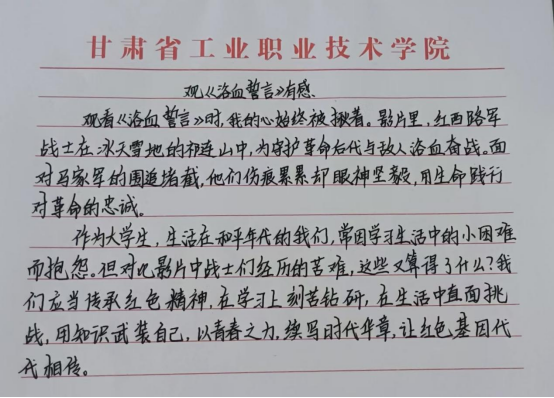 甘肃省工业职业技术学院
观《浴血誓言》有感.
观看《浴血誓言》时,我的心始终被揪着。影片里,红西路军
战士在冰天雪地的祁连山中,为守护革命后代与敌人浴血奋战。面
对马家军的围追堵截,他们伤痕累累却眼神坚毅,用生命践行
对革命的忠诚。
作为大学生,生活在和平年代的我们,常因学习生活中的小困难
而抱怨。但对比影片中战士们经历的苦难,这些又算得了什么?我
们应当传承红色精神,在学习上刻苦钻研,在生活中直面挑
战,用知识武装自己,以青春之力,续写时代华章,让红色基因代
代相传。